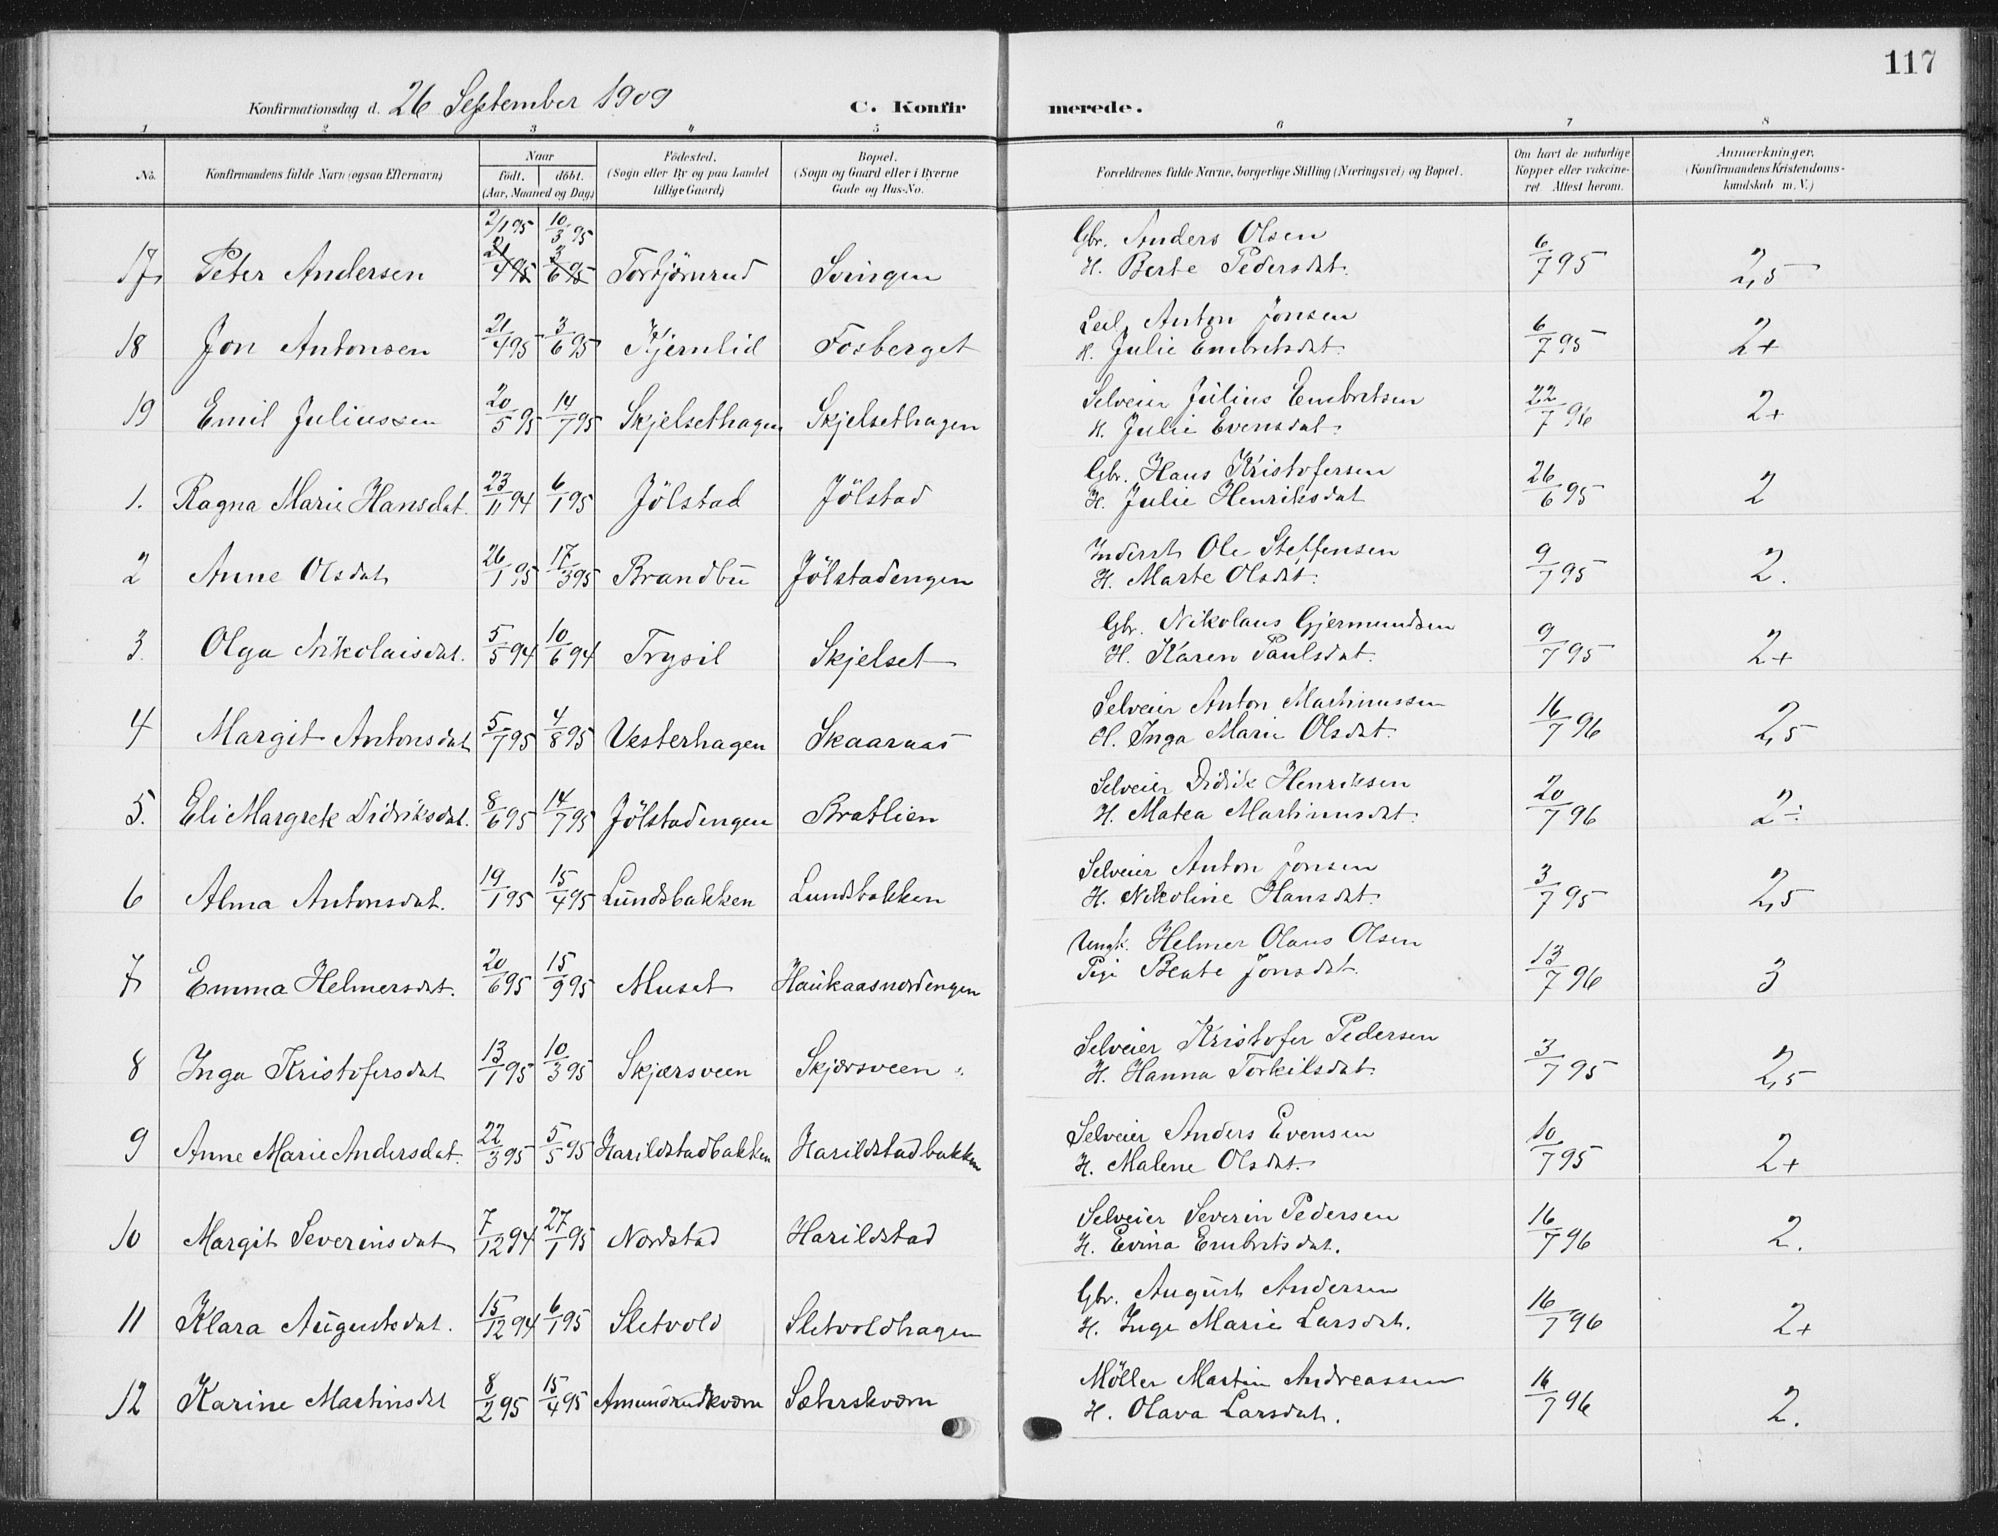 117
Konfirmationsdag d. 26 September 1909 C. Konfirmerede.
1 2 3 4 5 6 7 8
No. Konfirmandens fulde Navn (ogsaa Efternavn) Naar født. døbt. (Aar, Maaned og Dag) Födested. (Sogn eller By og paa Landet tillige Gaard) Bopæl. (Sogn og Gaard eller i Byerne Gade og Hus-No. Forældrenes fulde Navne, borgerlige Stilling (Næringsvei) og Bopæl. Om havt de naturlige Kopper eller vakcineret Attest herom. Anmærkninger, (Konfirmandens Kristendomskundskab m. V.)
2/1 95 10/3 95 Gbr. Anders Olsen
17, Peter Andersen 21/4 95 3/6 95 Torbjørnrud Svingen H. Berte Pedersdat. 6/7 95 2,5
Leil. Anton Jonsen
18 Jon Antonsen 21/4 95 3/6 95 Kjernlid Fosberget H. Julie Embretsdat. 6/7 95 2+
Selveier Julius Embretsen
19 Emil Juliussen 20/5 95 14/7 95 Skjelsethagen Skjelsethagen H. Julie Evensdat. 22/7 96 2+
Gbr. Hans Kristofersen
1. Ragna Marie Hansdat. 23/11 94 6/1 95 Jölstad Jölstad H. Julie Henriksdat 26/6 95 2
Inderst Ole Steffensen
2 Anne Olsdat 26/1 95 17/3 95 Brandbu Jölstadengen H. Marte Olsdat. 9/7 95 2.
Gbr. Nikolaus Gjermundsen
3. Olga Nikolaisdat. 5/5 94 10/6 94 Trysil Skjelset H. Karen Paulsdat. 9/7 95 2+
Selveier Anton Martinussen
4 Margit Antonsdat 5/7 95 4/8 95 Vesterhagen Skaaraas H. Inga Marie Olsdat. 16/7 96 2,5
Selveier Didrik Henriksen
5. Eli Margrete Didriksdat. 8/6 95 14/7 95 Jölstadengen Bratlien H. Matea Martinusdat. 20/7 96 2÷
Selveier Anton Jonsen
6 Alma Antonsdat. 19/1 95 15/4 95 Lundsbakken Lundsbakken H. Nikoline Hansdat. 3/7 95 2,5
Ungk. Helmer Olaus Olsen
7 Emma Helmersdat. 20/6 95 15/9 95 Muset Haukaasnordengen Pige Beate Jonsdat. 13/7 96 3
Selveier Kristofer Pedersen
8 Inga Kristofersdat 13/1 95 10/3 95 Skjærsveen Skjærsveen H. Hanna Torkilsdat. 3/7 95 2,5
Selveier Anders Evensen
9 Anne Marie Andersdat. 22/3 95 5/5 95 Harildstadbakken Harildstadbakken H. Malene Olsdat. 10/7 95 2+
Selveier Severin Pedersen
10 Margit Severinsdat 7/12 94 27/1 95 Nordstad Harildstad H. Evina Embretsdat. 16/7 96 2.
Gbr. August Andersen
11 Klara Augustsdat. 15/12 94 6/1 95 Sletvold Sletvoldhagen H. Inge Marie Larsdat. 16/7 96 2+
Möller Martin Andreassen
12 Karine Martinsdat 8/2 95 15/4 95 Amundrudkværn Sæterskværn H. Olava Larsdat. 16/7 96 2.